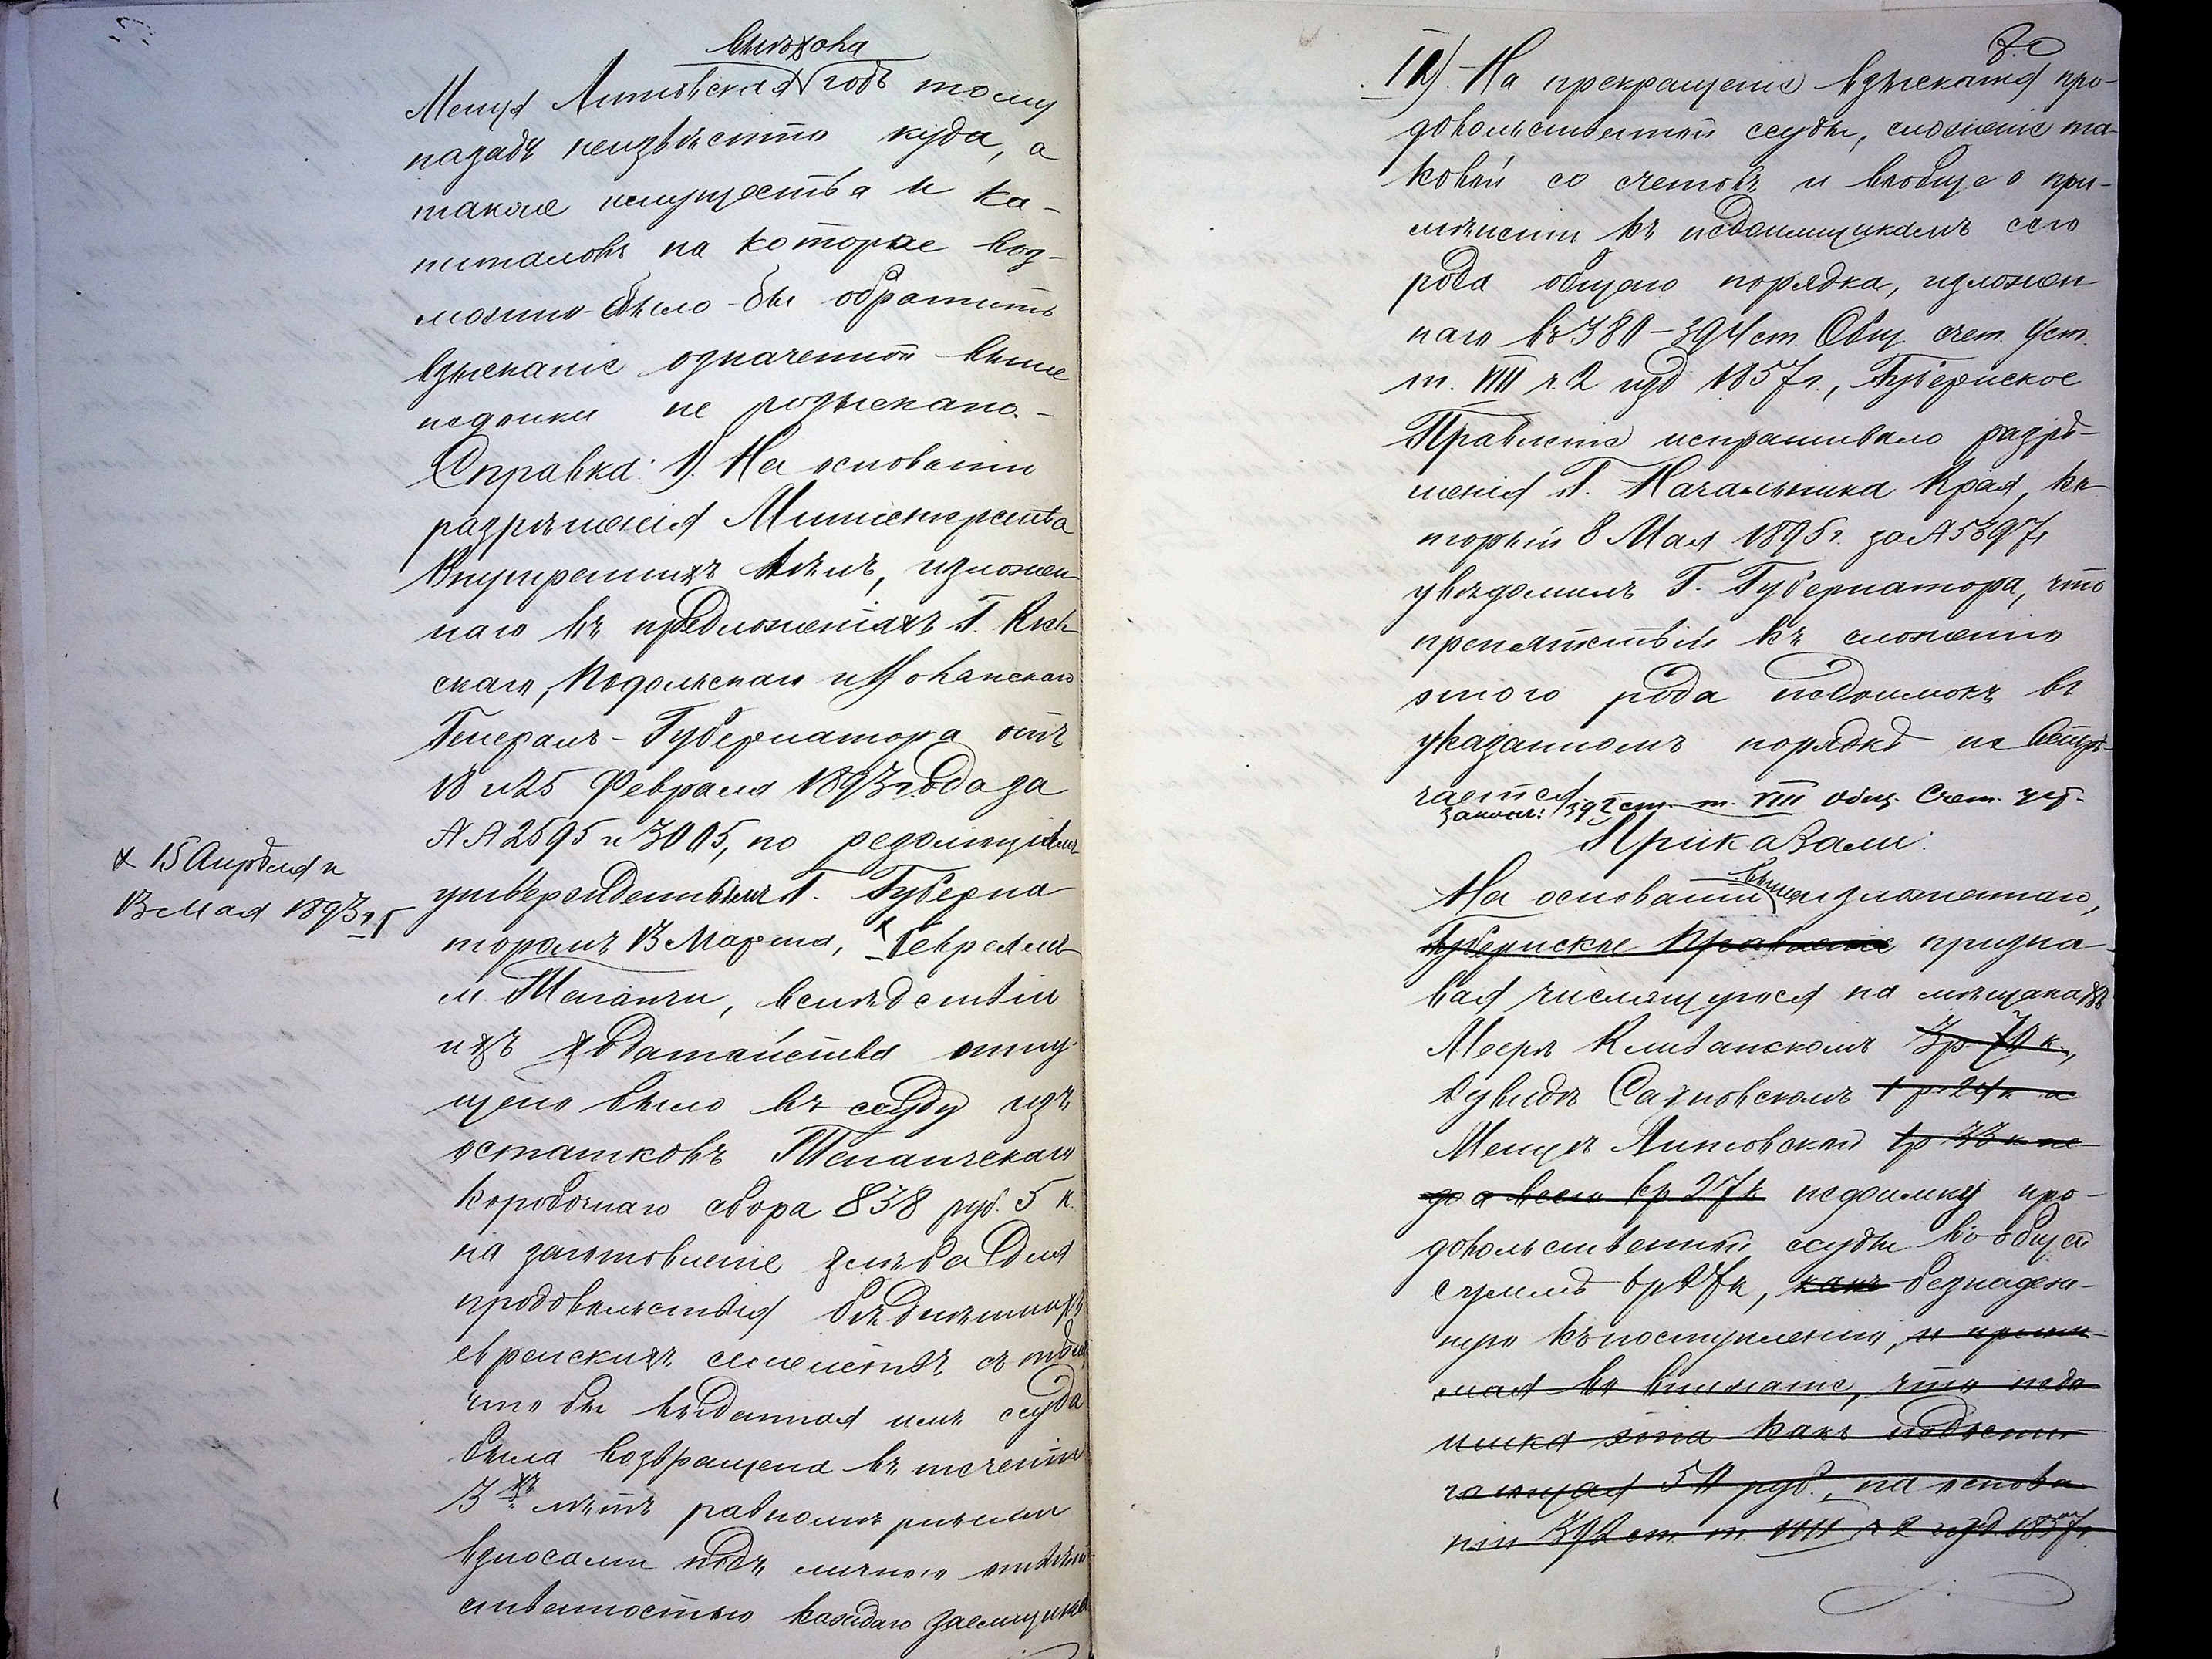 выѣхала
Менуя Липовская годъ тому
назадъ неизвѣстно куда, а
также имущества и ка-
питаловъ на которые воз-
можно было-бы обратить
взысканіе означенной выше
недоимки не розыскано.-
Справка: 1). На основаніи
разрѣшенія Министерства
Внутреннихъ Дѣлъ, изложен
наго въ предложеніяхъ Г. Кіев-
скаго, Подольскаго и Волынскаго
Генералъ-Губернатора отъ
18 и 25 Февраля 1893 года за
№№ 2595 и 3005, по резолюціямъ
х 15 Апрѣля и
13 Мая 1893 г.
утвержденнымъ Г. Губерна
торомъ 13 Марта, х Евреямъ
м. Степани, вслѣдствіи
ихъ ходатайства отпу-
щено было въ ссуду изъ
остатковъ Степанскаго
коробочнаго сбора 838 руб. 5 к.
на заготовленіе хлѣба для
продовольствія бѣднѣйшихъ
еврейскихъ семействъ съ тѣмъ,
что бы выданная имъ ссуда
была возвращена въ теченіи
3хъ лѣтъ равномѣрными
взносами подъ личною отвѣт-
ственностью каждаго заемщика
30
II). На прекращеніе взысканія про-
довольственной ссуды, сложеніе та-
ковой со счетовъ и вообще о при-
мѣненіи къ недоимщикамъ сего
рода общаго порядка, изложен
наго въ 380-394 ст. Общ. счет. Уст.
т. VIII ч 2 изд 1857 г., Губернское
Правленіе испрашивало разрѣ-
шенія Г. Начальника Края, ко-
торый 8 Мая 1895 г. за № 5397
увѣдомилъ Г. Губернатора, что
препятствій къ сложенію
этого рода недоимокъ въ
указанномъ порядкѣ не встрѣ-
чается
Законъ: 392 ст. т. VIII Общ. Счет. уст.
Приказали:
На основаніи вышеизложеннаго,
Губернское Правленіе призна-
вая числящуюся на мѣщанахъ
Меерѣ Кливанскомъ 3 р. 70 к.,
Дувидѣ Сахновскомъ 1 р. 24 к и
Менуѣ Липовской 1 р 33 к не
до а всего 6 р 27 к недоимку про-
довольственной ссуды въ общей
суммѣ 6 р 27 к, какъ безнадеж-
ную къ поступленію, и прини-
мая во вниманіе, что недо
имка эта какъ недости
гающая 50 руб., на основа
ніи 392 ст. т. VIII ч 2 изд 1857 г.